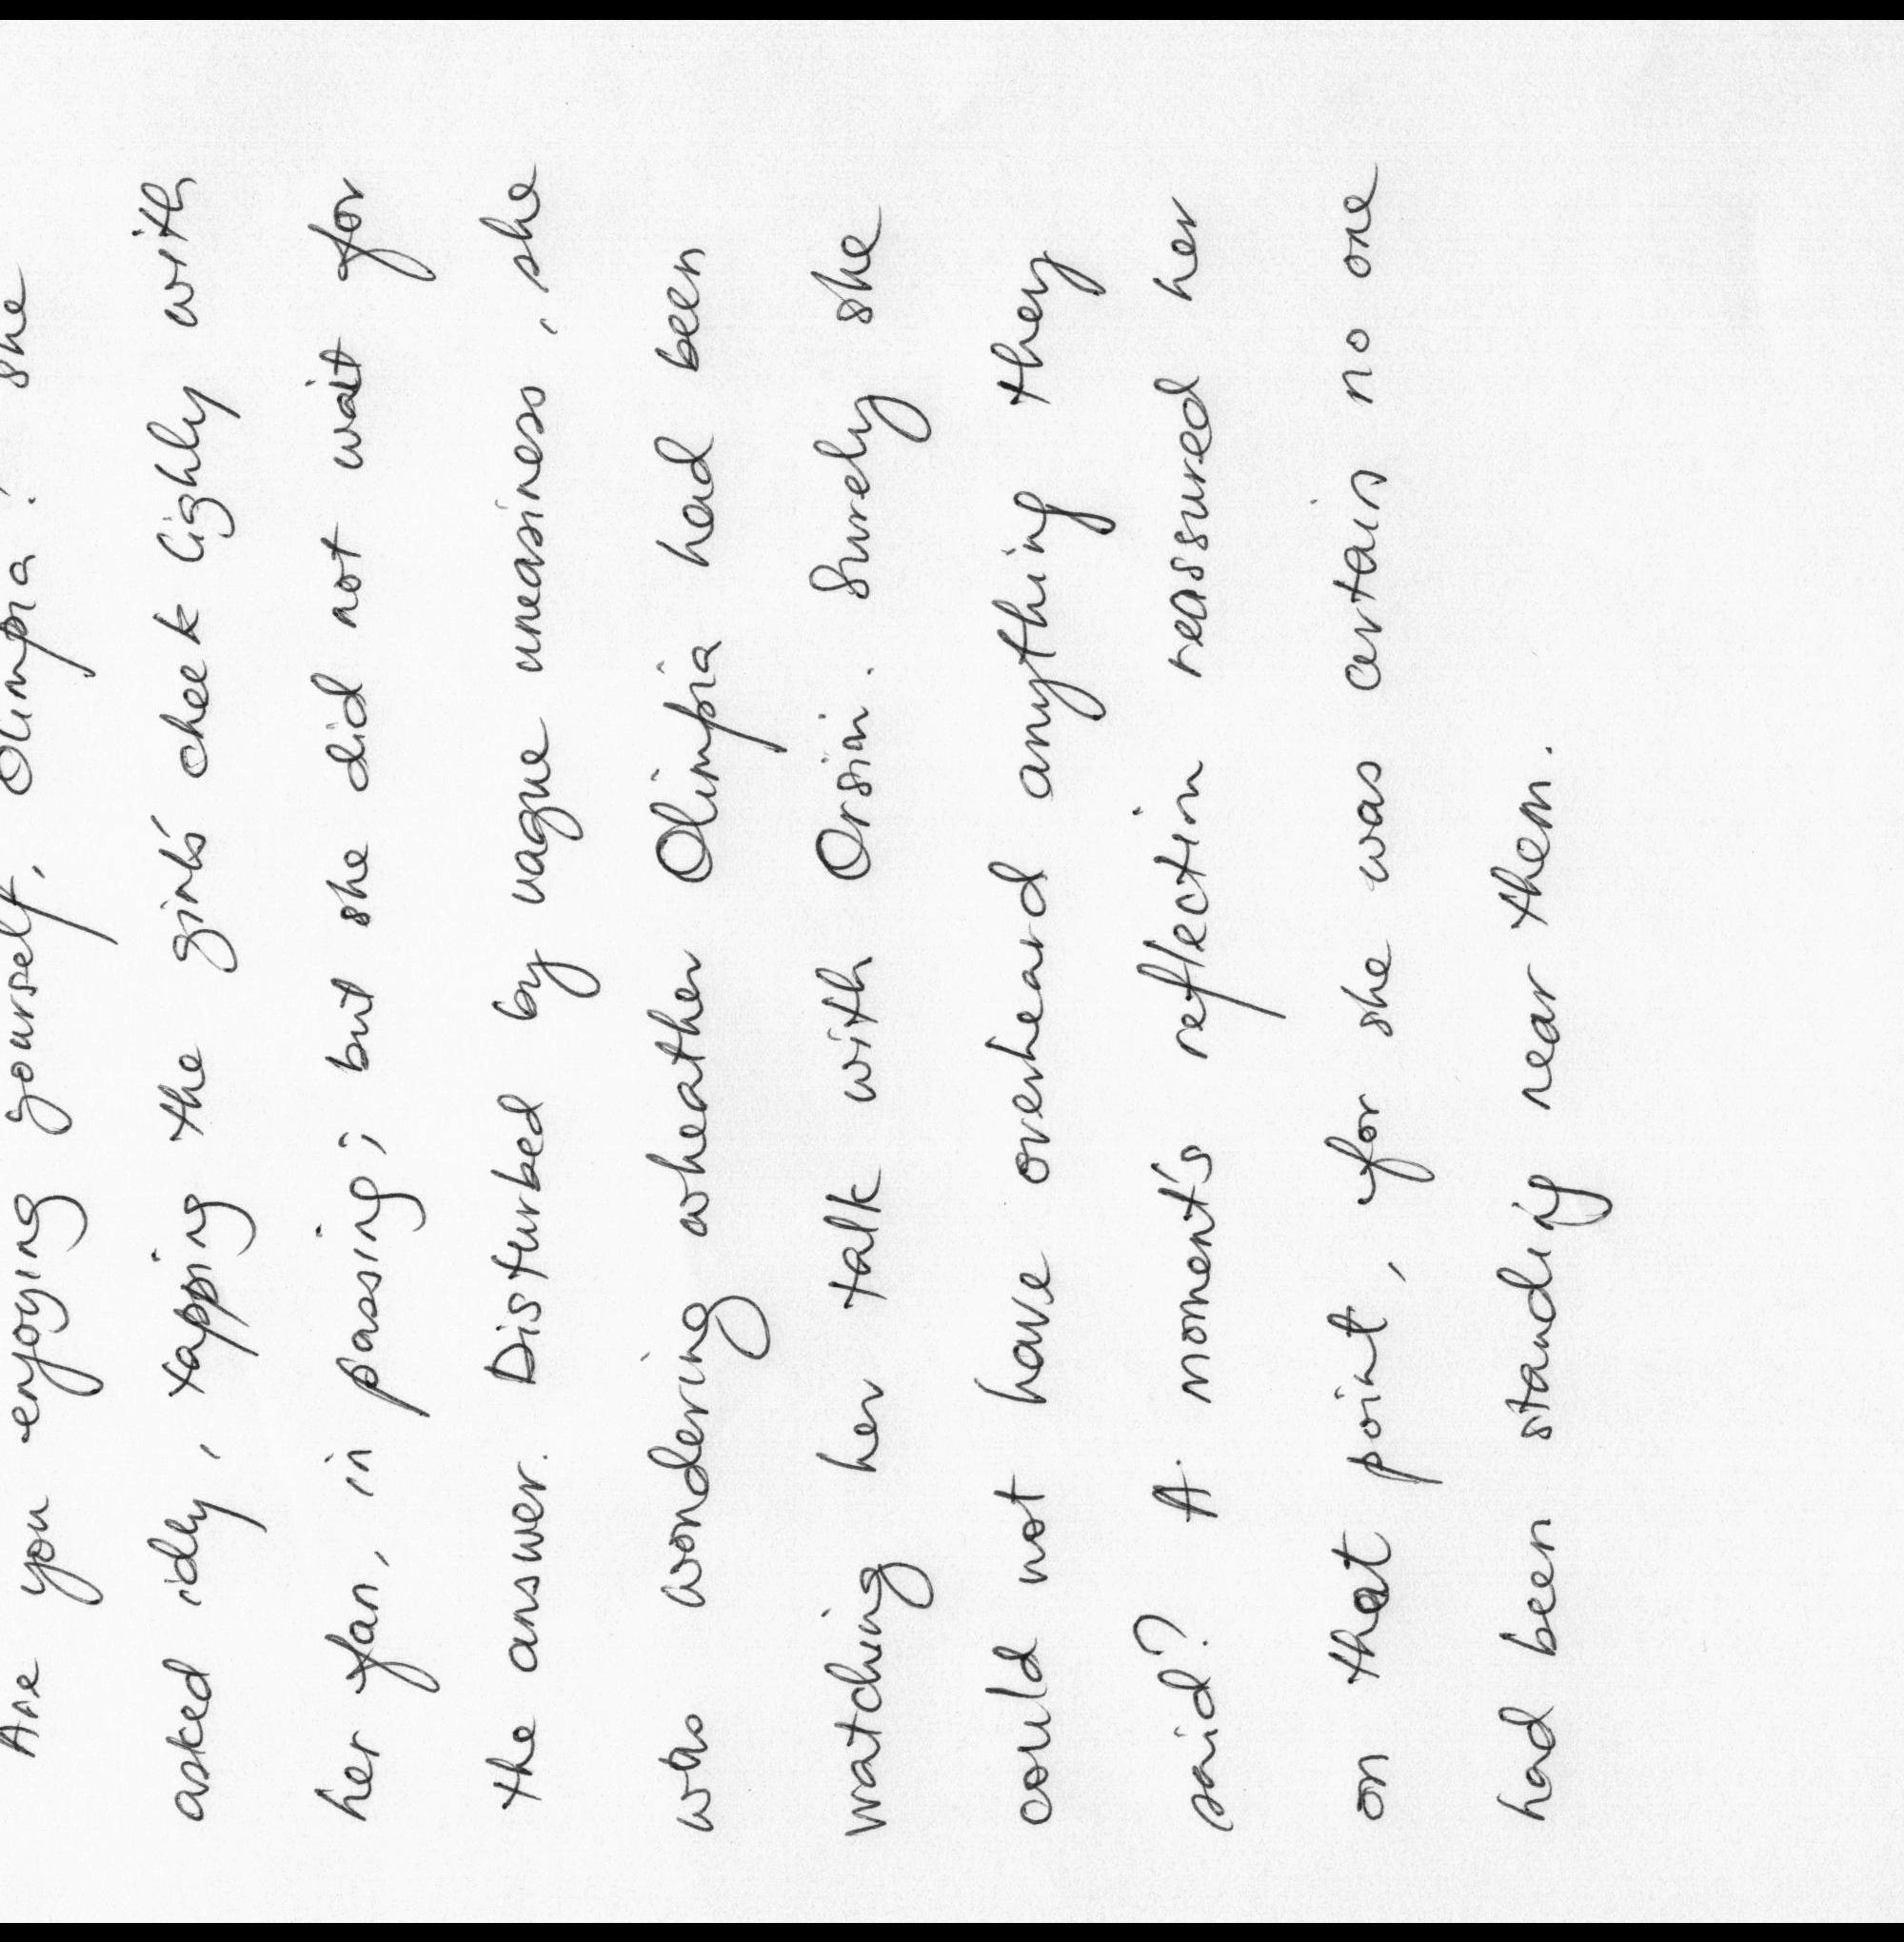 Are you enjoying yourself, Olimpia? she
asked idly, tapping the girl's cheek lighly with
her fan, in passing; but she did not wait for
the answer. Disturbed by vague uneasiness, she
was wondering wheather Olimpia had been
watching her talk with Orsin. Surely she
could not have overheard anything they
said? A moment's reflection reassured her
on that point, for she was certain no one
had been standing near them.